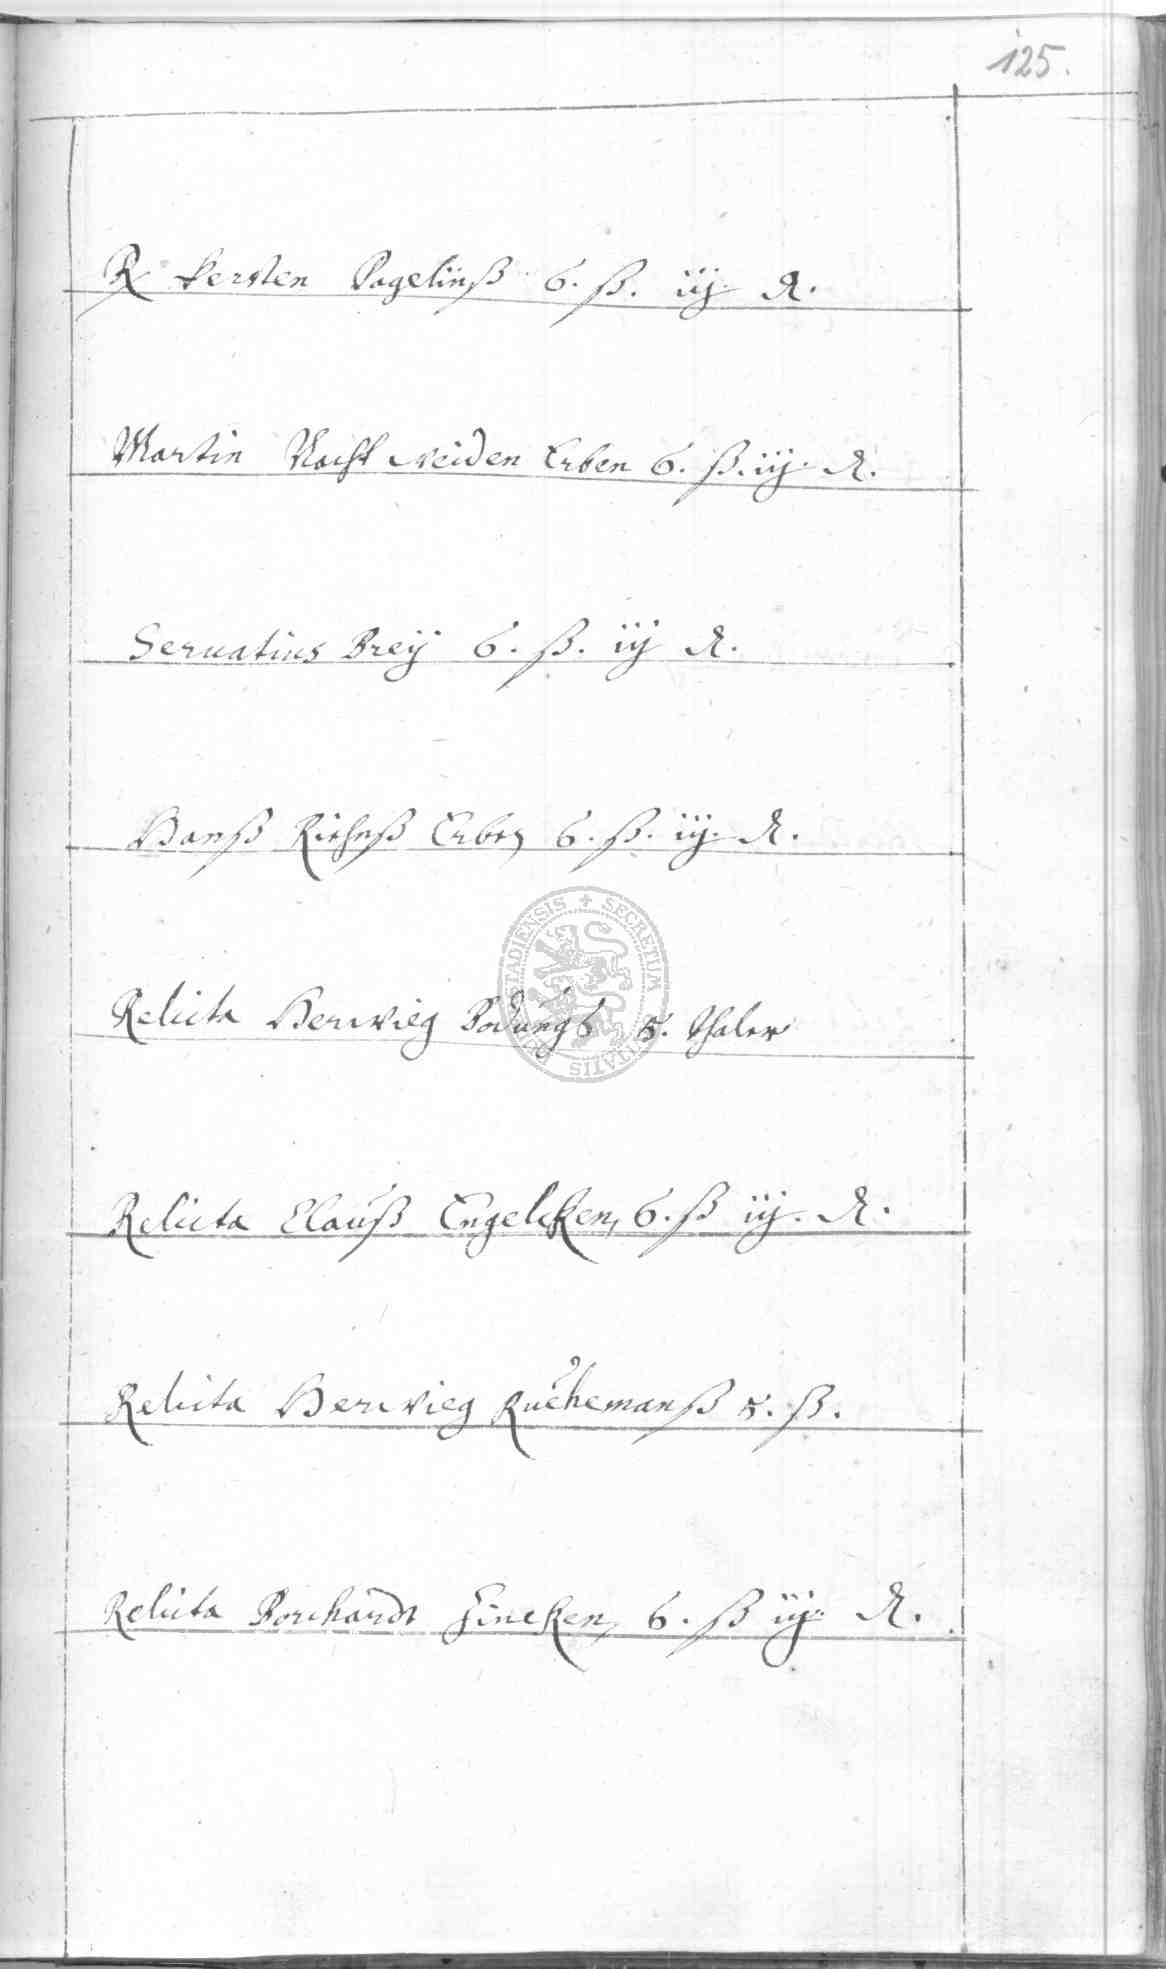 125.
R Kersten Pagelinß 6. ß. iij. ₰.
Martin Nachtweiden Erben 6. ß. iij. ₰.
Seruatius Breÿ 6. ß. iij ₰.
Hanß Erben 6. ß. iij. ₰.
Relicta Herwieg Bodungß 5. thaler
Relicta Clauß Engelcken, 6. ß iij. ₰.
Relicta Herwieg Ruchemanß 5. ß.
Relicta Borchardt Fincken, 6. ß iij. ₰.
SECRETUM CIVITATIS STADIENSIS